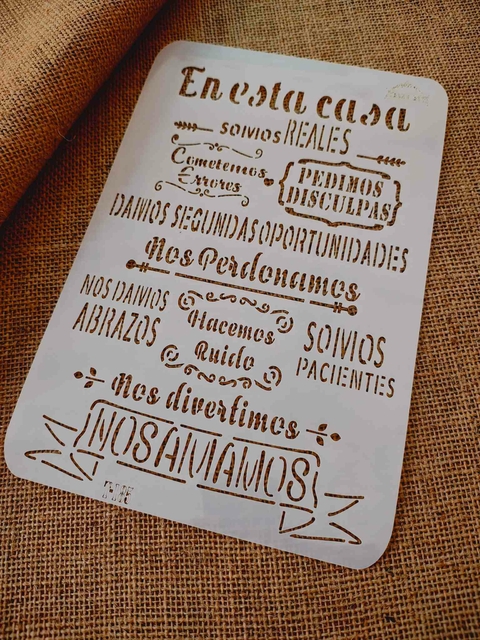 En esta casa
somos REALES
Cometemos
Errores
PEDIMOS
DISCULPAS
DAMOS SEGUNDAS OPORTUNIDADES
Nos Perdonamos
NOS DAMOS
ABRAZOS
Hacemos
Ruido
SOMOS
PACIENTES
Nos divertimos
NOS AMAMOS